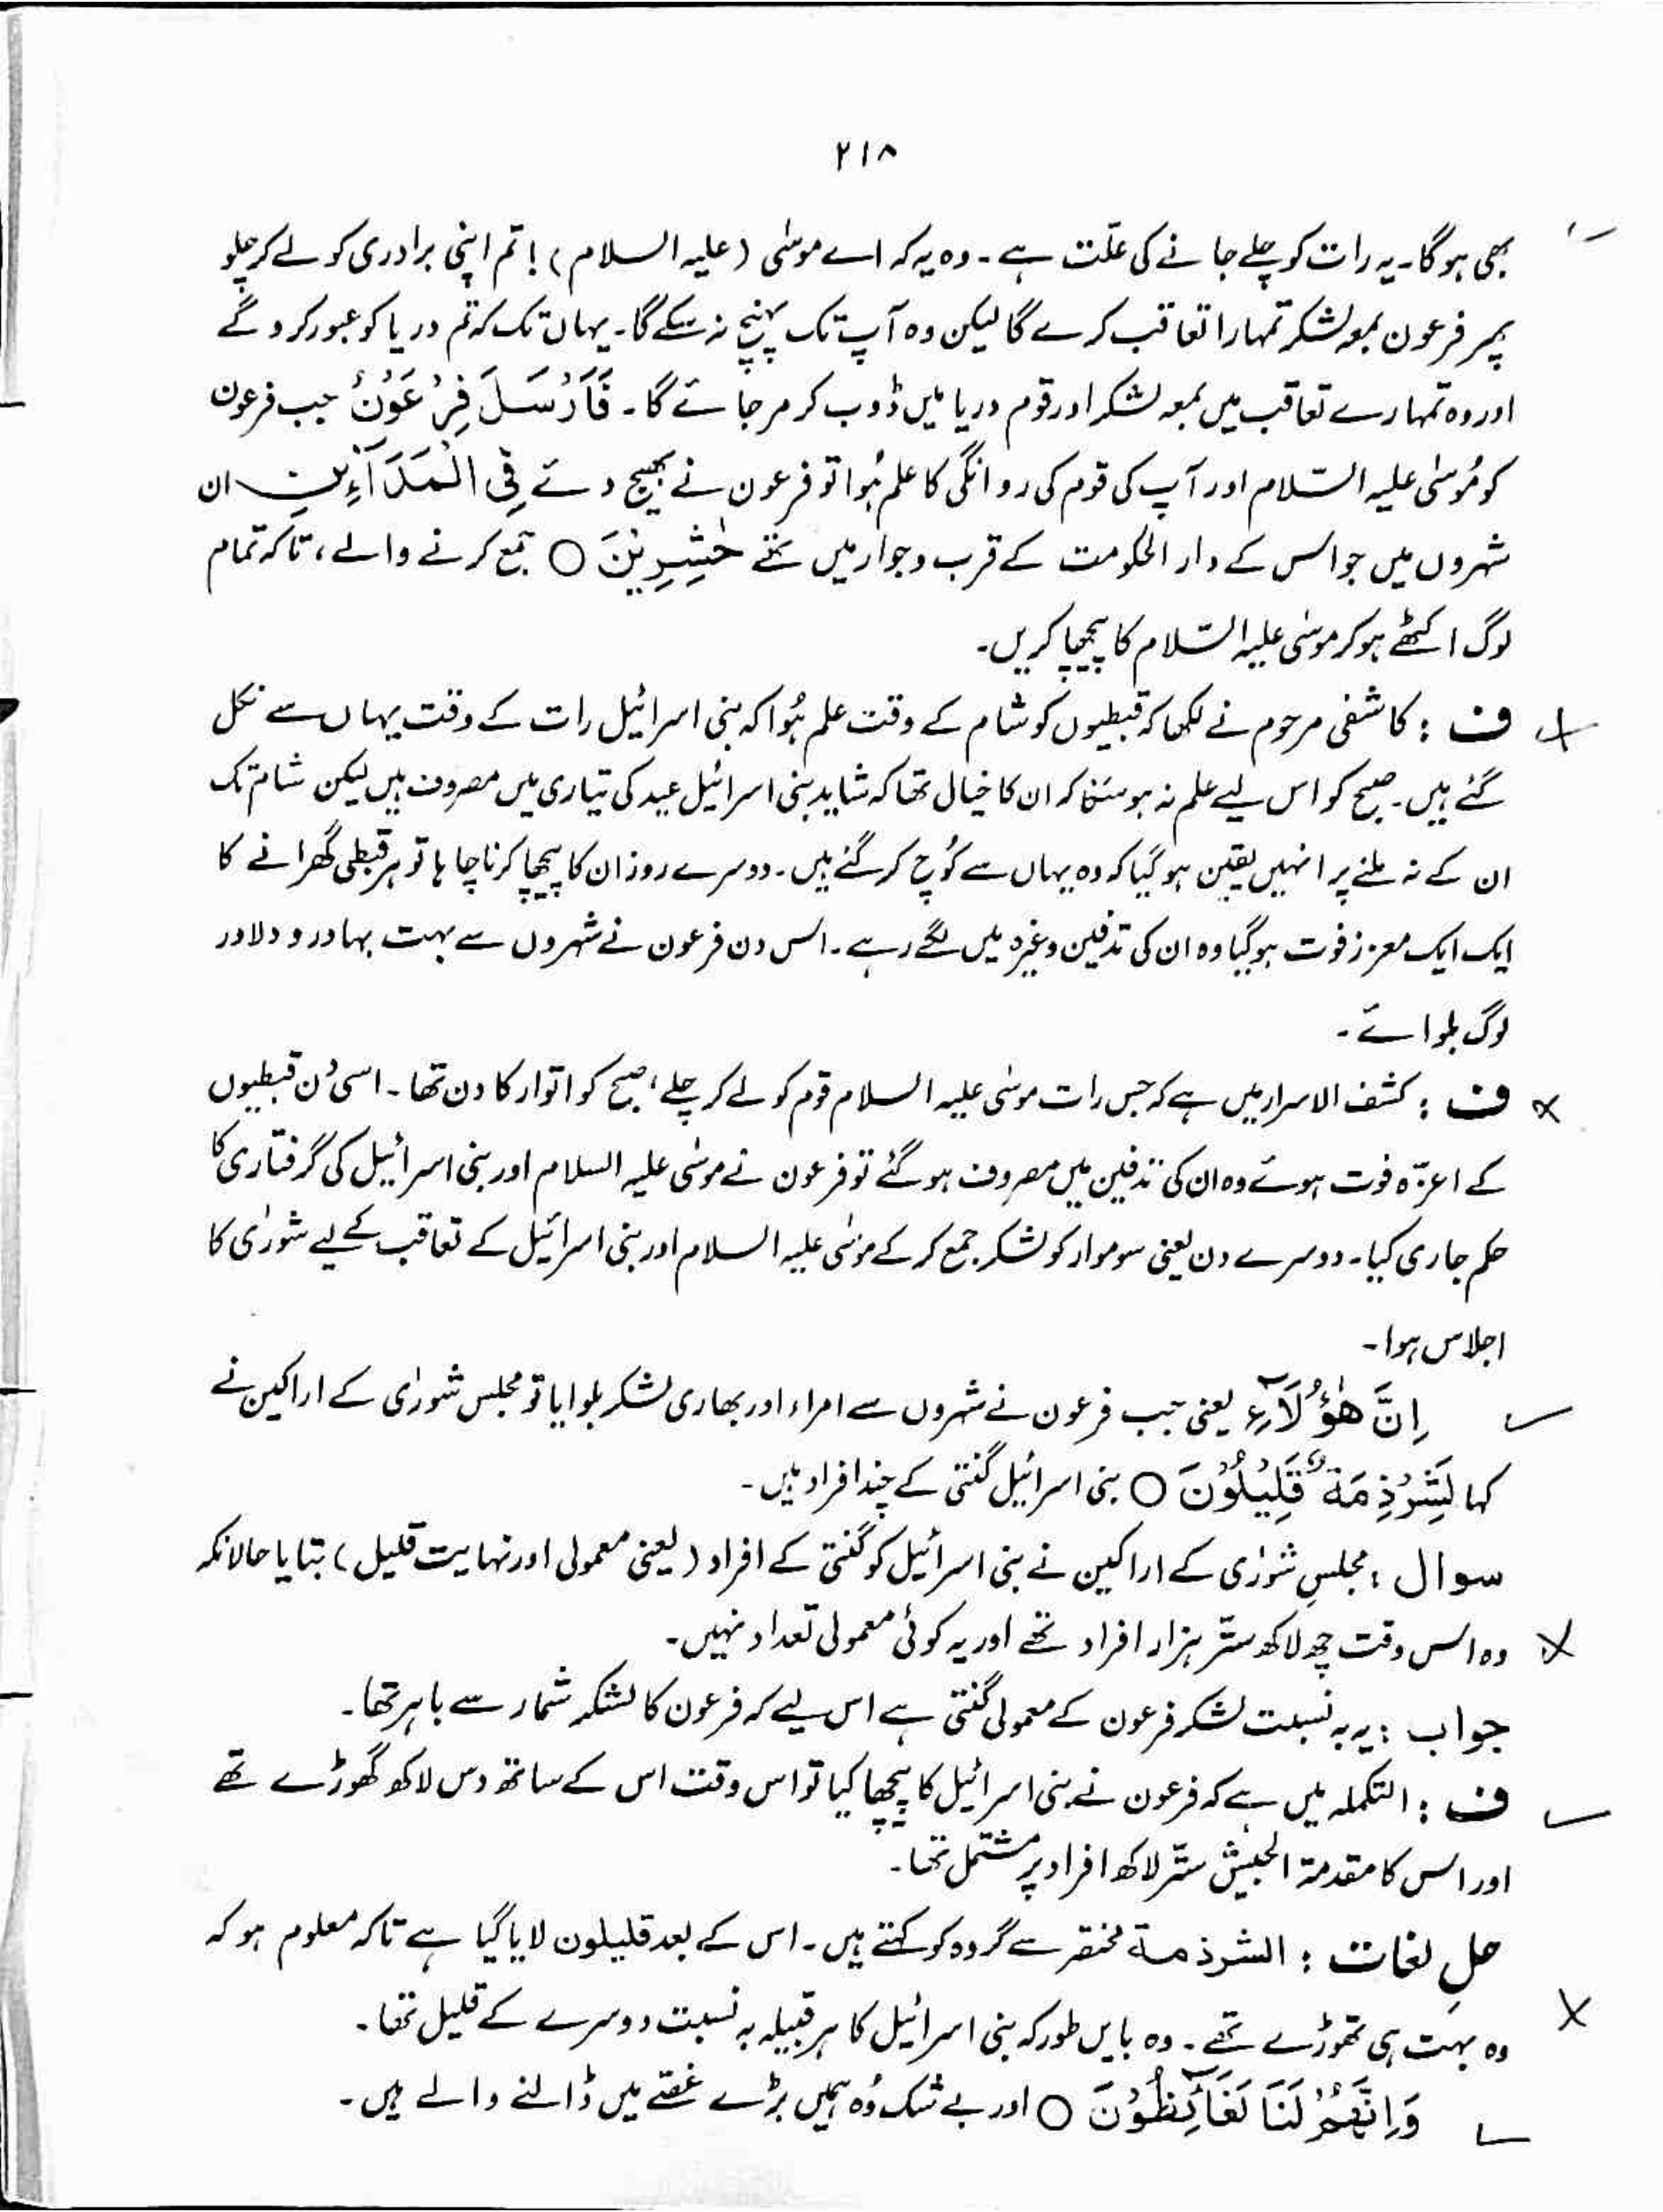 ۲۱۸
بھی ہوگا۔ یہ رات کو چلے جانے کی علّت ہے۔ وہ یہ کہ اے موسٰی (علیہ السلام)! تم اپنی برادری کو لے کر چلو
پھر فرعون بمعہ لشکر تمہارا تعاقب کرے گا لیکن وہ آپ تک پہنچ نہ سکے گا۔ یہاں تک کہ تم دریا کو عبور کرو گے
اور وہ تمہارے تعاقب میں بمعہ لشکر اور قوم دریا میں ڈوب کر مر جائے گا۔ فَاَرْسَلَ فِرْعَوْنُ جب فرعون
کو مُوسٰی علیہ السّلام اور آپ کی قوم کی روانگی کا علم ہُوا تو فرعون نے بھیج دئے فِی الْمَدَآئِنِ ان
شہروں میں جو اس کے دار الحکومت کے قرب و جوار میں تھے حٰشِرِیْنَ ○ جمع کرنے والے، تاکہ تمام
لوگ اکٹھے ہو کر موسٰی علیہ السّلام کا پیچھا کریں۔
ف : کاشفی مرحوم نے لکھا کہ قبطیوں کو شام کے وقت علم ہُوا کہ بنی اسرائیل رات کے وقت یہاں سے نکل
گئے ہیں۔ صبح کو اس لیے علم نہ ہو سکا کہ ان کا خیال تھا کہ شاید بنی اسرائیل عید کی تیاری میں مصروف ہیں لیکن شام تک
ان کے نہ ملنے پر انہیں یقین ہو گیا کہ وہ یہاں سے کُوچ کر گئے ہیں۔ دوسرے روز ان کا پیچھا کرنا چاہا تو ہر قبطی گھرانے کا
ایک ایک معزز فوت ہو گیا وہ ان کی تدفین وغیرہ میں لگے رہے۔ اس دن فرعون نے شہروں سے بہت بہادر و دلاور
لوگ بلوائے۔
ف : کشف الاسرار میں ہے کہ جس رات موسٰی علیہ السلام قوم کو لے کر چلے، صبح کو اتوار کا دن تھا۔ اسی دن قبطیوں
کے اعزّہ فوت ہوئے وہ ان کی تدفین میں مصروف ہو گئے تو فرعون نے موسٰی علیہ السلام اور بنی اسرائیل کی گرفتاری کا
حکم جاری کیا۔ دوسرے دن یعنی سوموار کو لشکر جمع کر کے موسٰی علیہ السلام اور بنی اسرائیل کے تعاقب کے لیے شورٰی کا
اجلاس ہوا۔
اِنَّ هٰۤؤُلَآءِ یعنی جب فرعون نے شہروں سے امراء اور بھاری لشکر بلوایا تو مجلس شورٰی کے اراکین نے
کہا لَشِرْذِمَةٌ قَلِیْلُوْنَ ○ بنی اسرائیل گنتی کے چند افراد ہیں۔
سوال : مجلسِ شورٰی کے اراکین نے بنی اسرائیل کو گنتی کے افراد (یعنی معمولی اور نہایت قلیل) بتایا حالانکہ
وہ اس وقت چھ لاکھ ستّر ہزار افراد تھے اور یہ کوئی معمولی تعداد نہیں۔
جواب : یہ بہ نسبت لشکر فرعون کے معمولی گنتی ہے اس لیے کہ فرعون کا لشکر شمار سے باہر تھا۔
ف : التکملہ میں ہے کہ فرعون نے بنی اسرائیل کا پیچھا کیا تو اس وقت اس کے ساتھ دس لاکھ گھوڑے تھے
اور اس کا مقدمۃ الجیش ستّر لاکھ افراد پر مشتمل تھا۔
حلِ لغات : الشرذمة مختصر سے گروہ کو کہتے ہیں۔ اس کے بعد قلیلون لایا گیا ہے تاکہ معلوم ہو کہ
وہ بہت ہی تھوڑے تھے۔ وہ بایں طور کہ بنی اسرائیل کا ہر قبیلہ بہ نسبت دوسرے کے قلیل تھا۔
وَاِنَّهُمْ لَنَا لَغَآئِظُوْنَ ○ اور بے شک وُہ ہمیں بڑے غصّے میں ڈالنے والے ہیں۔